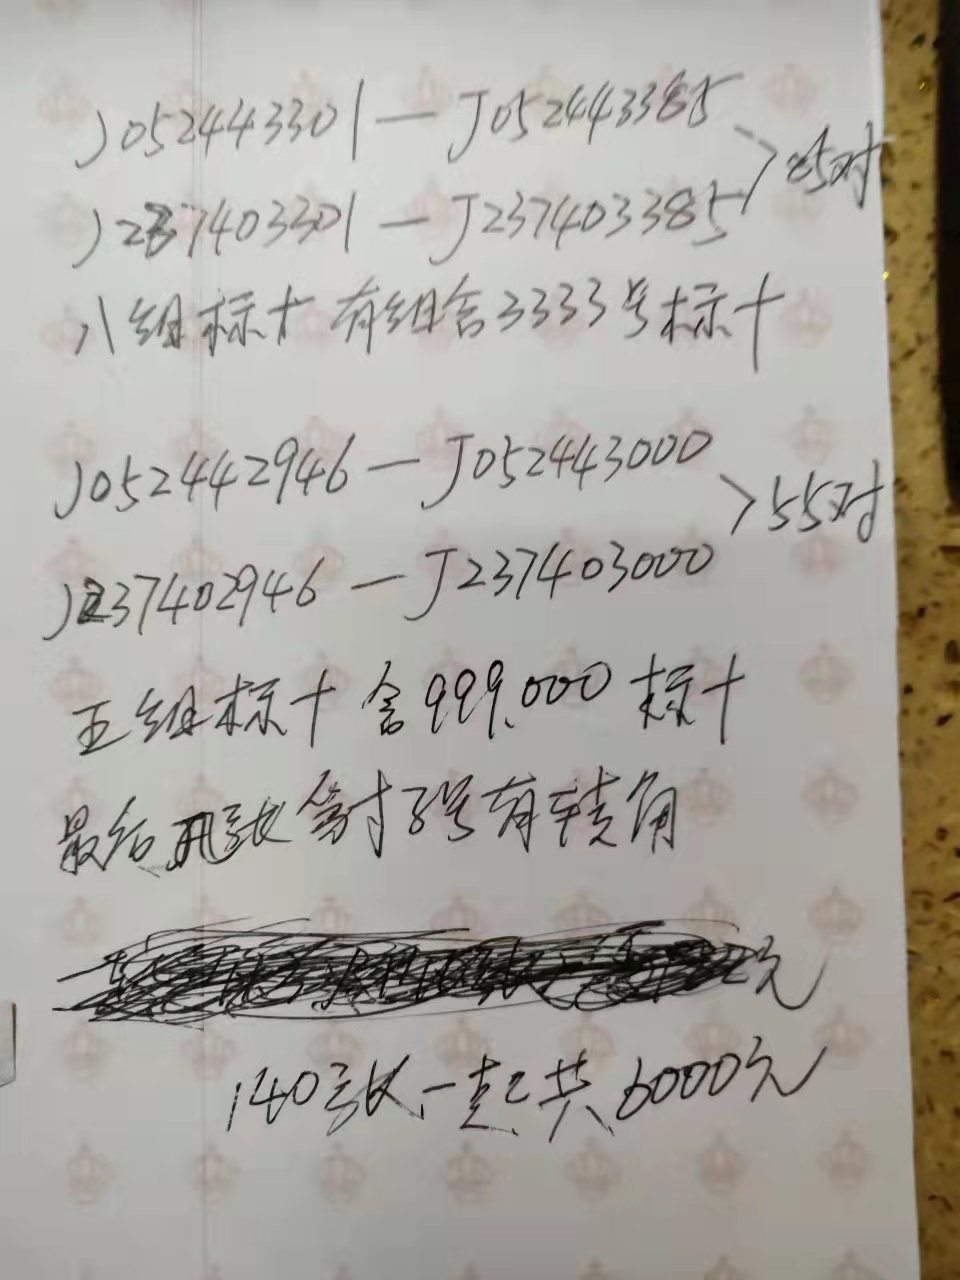 J052443301—J052443385
>85对
J237403301—J237403385
八组标十有组合3333号标十
J052442946—J052443000
>55对
J237402946—J237403000
五组标十含999.000标十
最后 张 有 角
元
140张一起共6000元